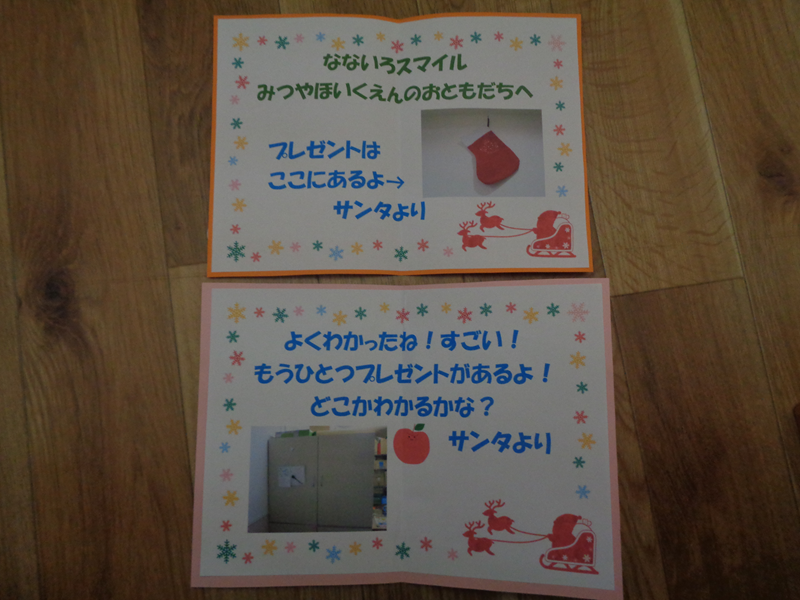 なないろスマイル
みつやほいくえんのおともだちへ
プレゼントは
ここにあるよ→
サンタより
よくわかったね！すごい！
もうひとつプレゼントがあるよ！
どこかわかるかな？
サンタより